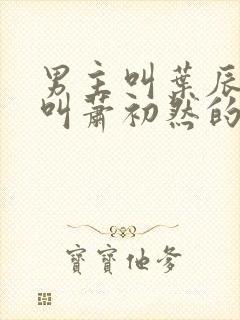 男主叫葉辰
叫蕭初然的
寶寶他爹